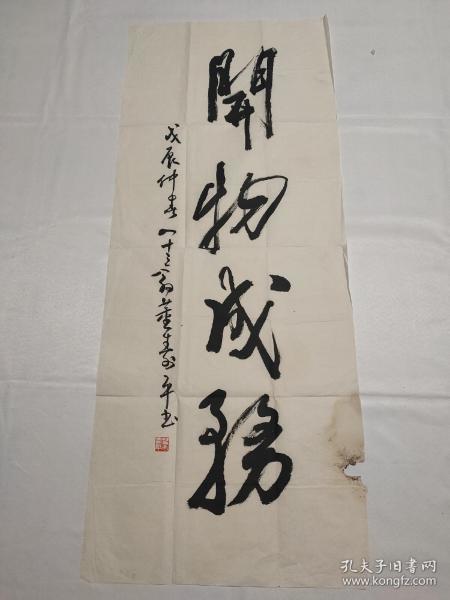 開物成務
戊辰仲春八十三翁董壽平书
孔夫子旧书网
www.kongfz.com